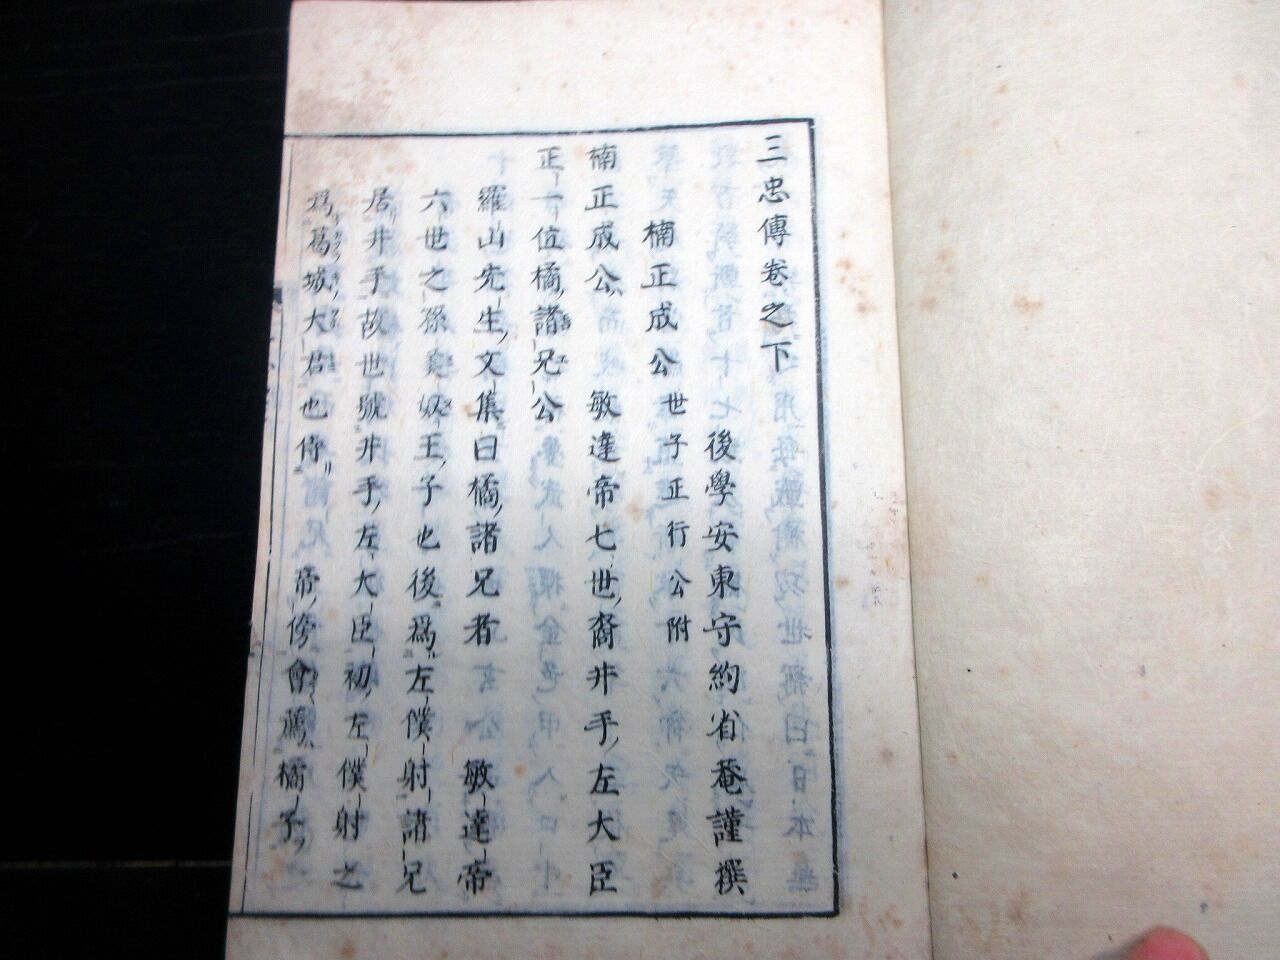 三忠傳卷之下
後學安東守約省菴謹撰
楠正成公 世子正行公附
楠正成公 敏達帝七世裔井手左大臣
正一位橘諸兄公
羅山先生文集曰橘諸兄者 敏達帝
六世之孫 奴王子也後爲左僕射諸兄
居井手故世號井手左大臣初左僕射之
爲葛城大君也侍 帝傍會薦橘子